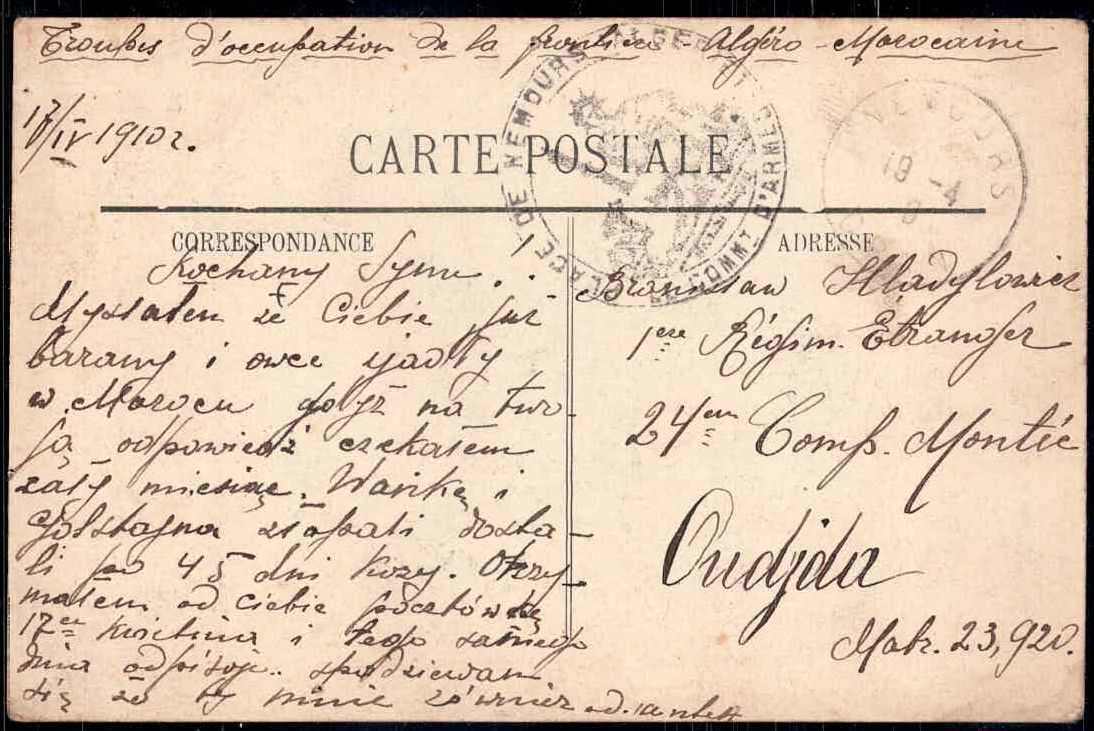 Troupes d'occupation de la frontière Algéro-Marocaine
17/IV 1910 r.
CARTE POSTALE
PLACE DE NEMOURS
COMMT D'ARMES
NEMOURS
19 -4
CORRESPONDANCE
Kochany Synu!
Myślałem że Ciebie już
barany i owce zjadły
w Marocu gdyż na two-
ją odpowiedź czekałem
cały miesiąc. Wańkę i
złapali dosta-
li po 45 dni kozy. Otrzy-
małem od ciebie pocztówkę
17ec kwietnia i tego samego
dnia odpisuję. spodziewam
się że ty mnie również
ADRESSE
Bronisław Hladylowicz
1ere Régim. Etranger
24em Comp. Montée
Oudjda
Matr. 23,920.